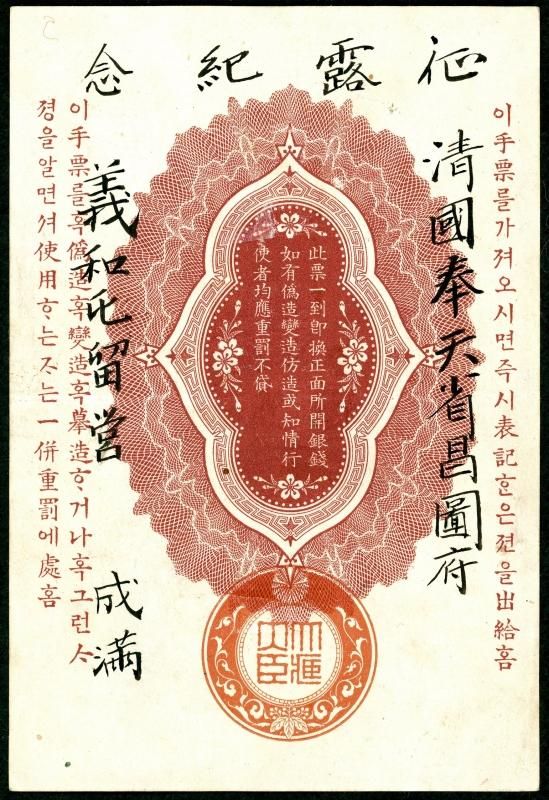 征露紀念
이手票를가져오시면즉시表記ᄒᆞᆫ은젼을出給홈
清國奉天省昌圖府
此票一到卽換正面所開銀錢
如有僞造變造仿造或知情行
使者均應重罰不貸
義和屯留營 成滿
이手票를혹僞造혹變造혹摹造ᄒᆞ거나혹그런ᄉᆞ
졍을알면셔使用ᄒᆞ는ᄌᆞ는一併重罰에處홈
大藏
大臣